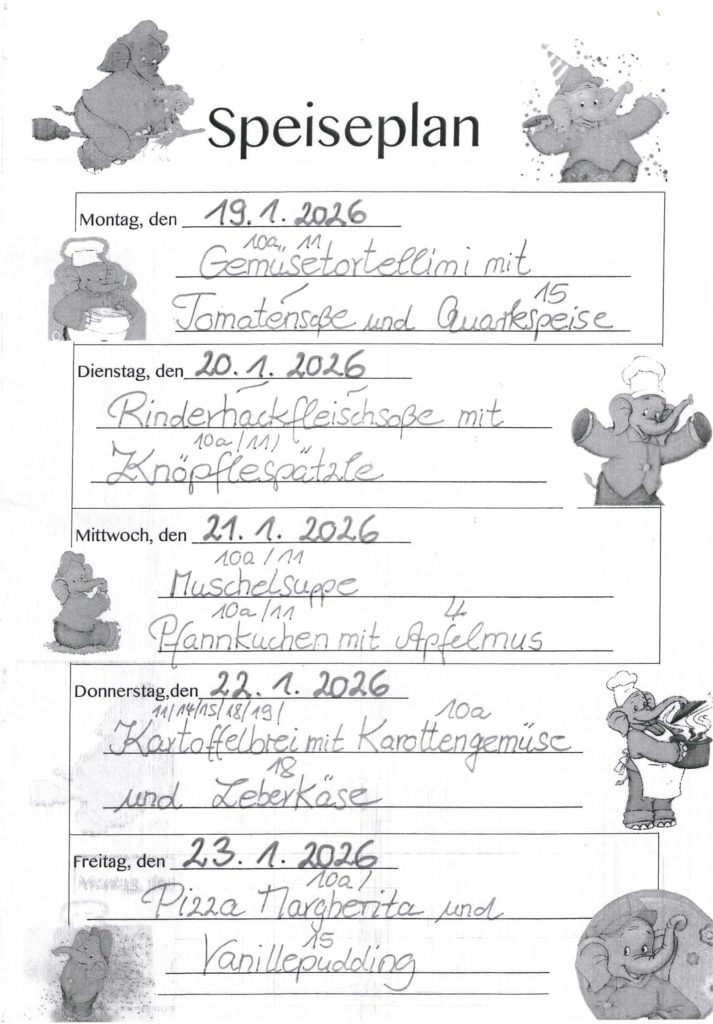 Speiseplan
Montag, den 19.1.2026
10a, 11
Gemüsetortellimi mit
15
Tomatensoße und Quarkspeise
Dienstag, den 20.1.2026
Rinderhackfleischsoße mit
10a/11/
Knöpflespätzle
Mittwoch, den 21.1.2026
10a/11
Muschelsuppe
10a/11 4
Pfannkuchen mit Apfelmus
Donnerstag,den 22.1.2026
11/14/15/18/19/ 10a
Kartoffelbrei mit Karottengemüse
18
und Leberkäse
Freitag, den 23.1.2026
10a/
Pizza Margherita und
15
Vanillepudding